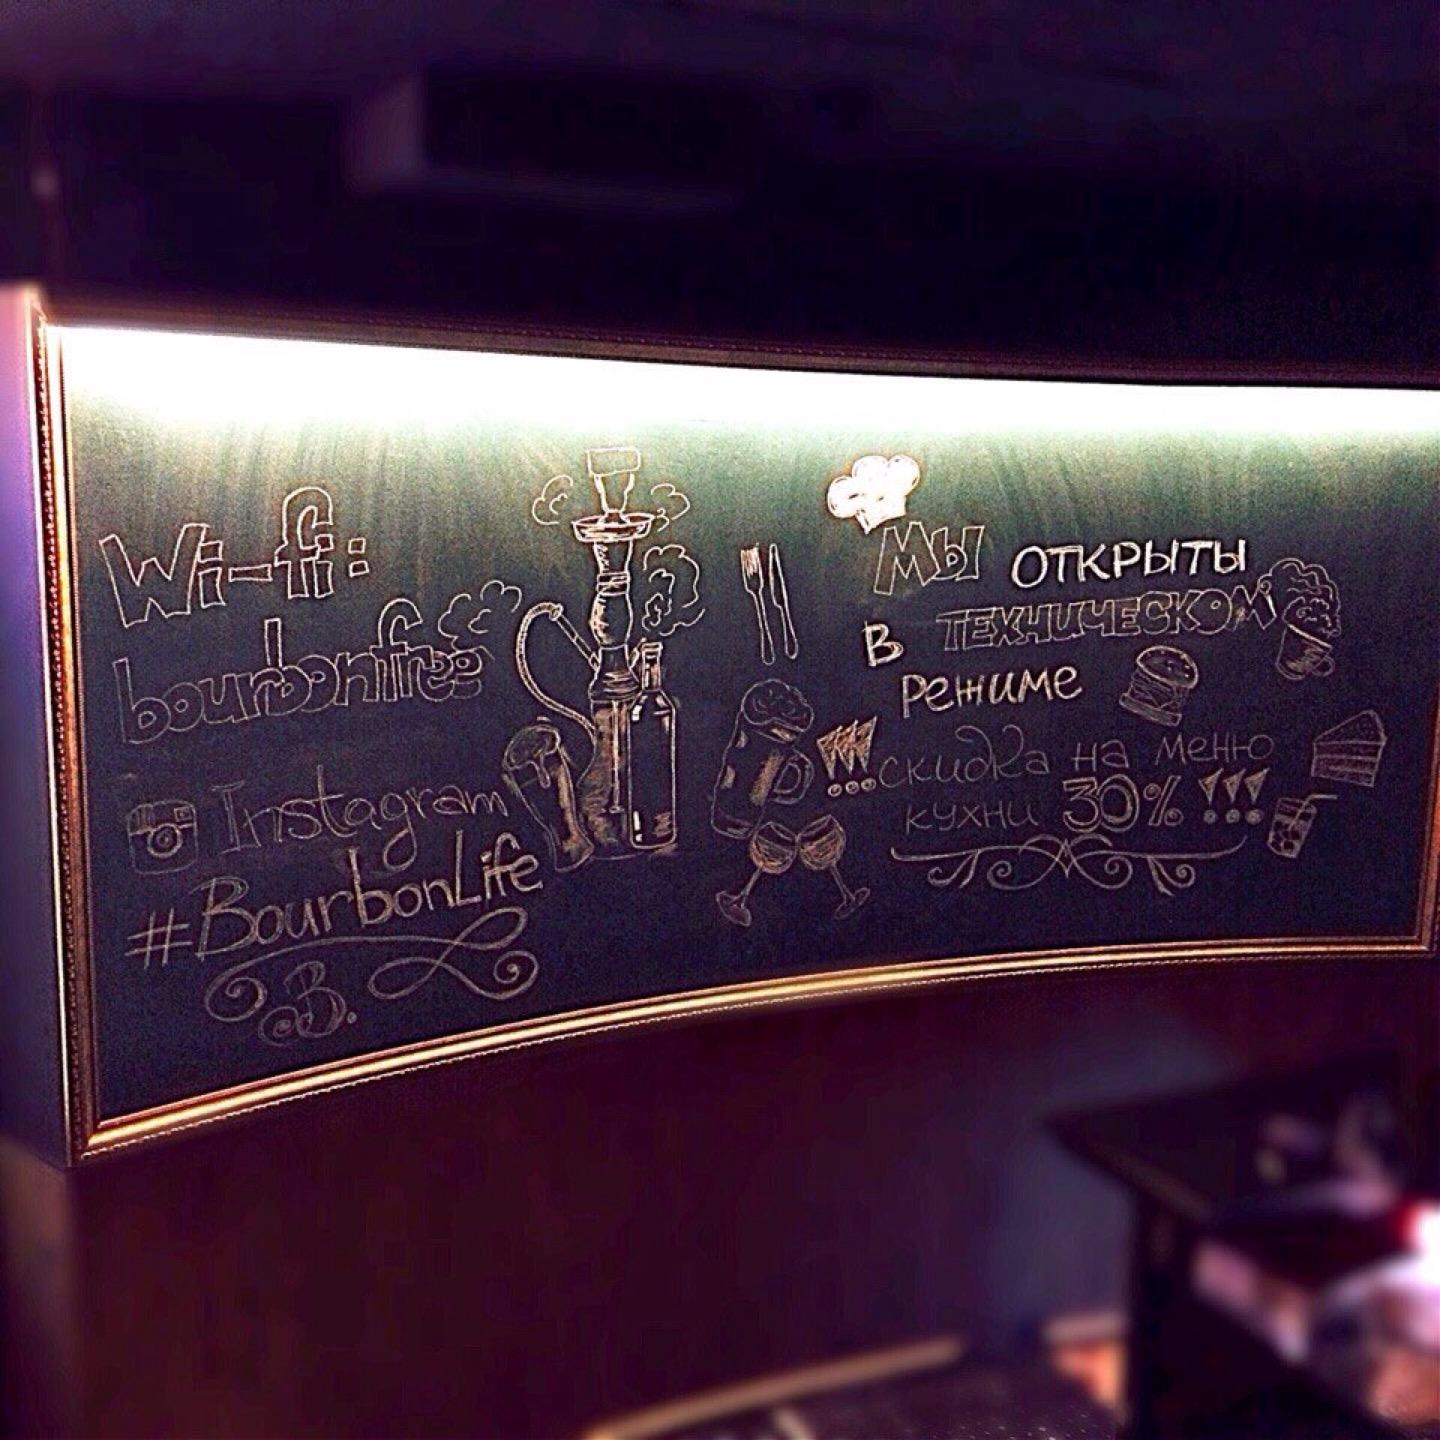 Wi-fi:
bourbonfree
Instagram
#BourbonLife
B.
Мы открыты
в техническом
режиме
!!!скидка на меню
кухни 30% !!!